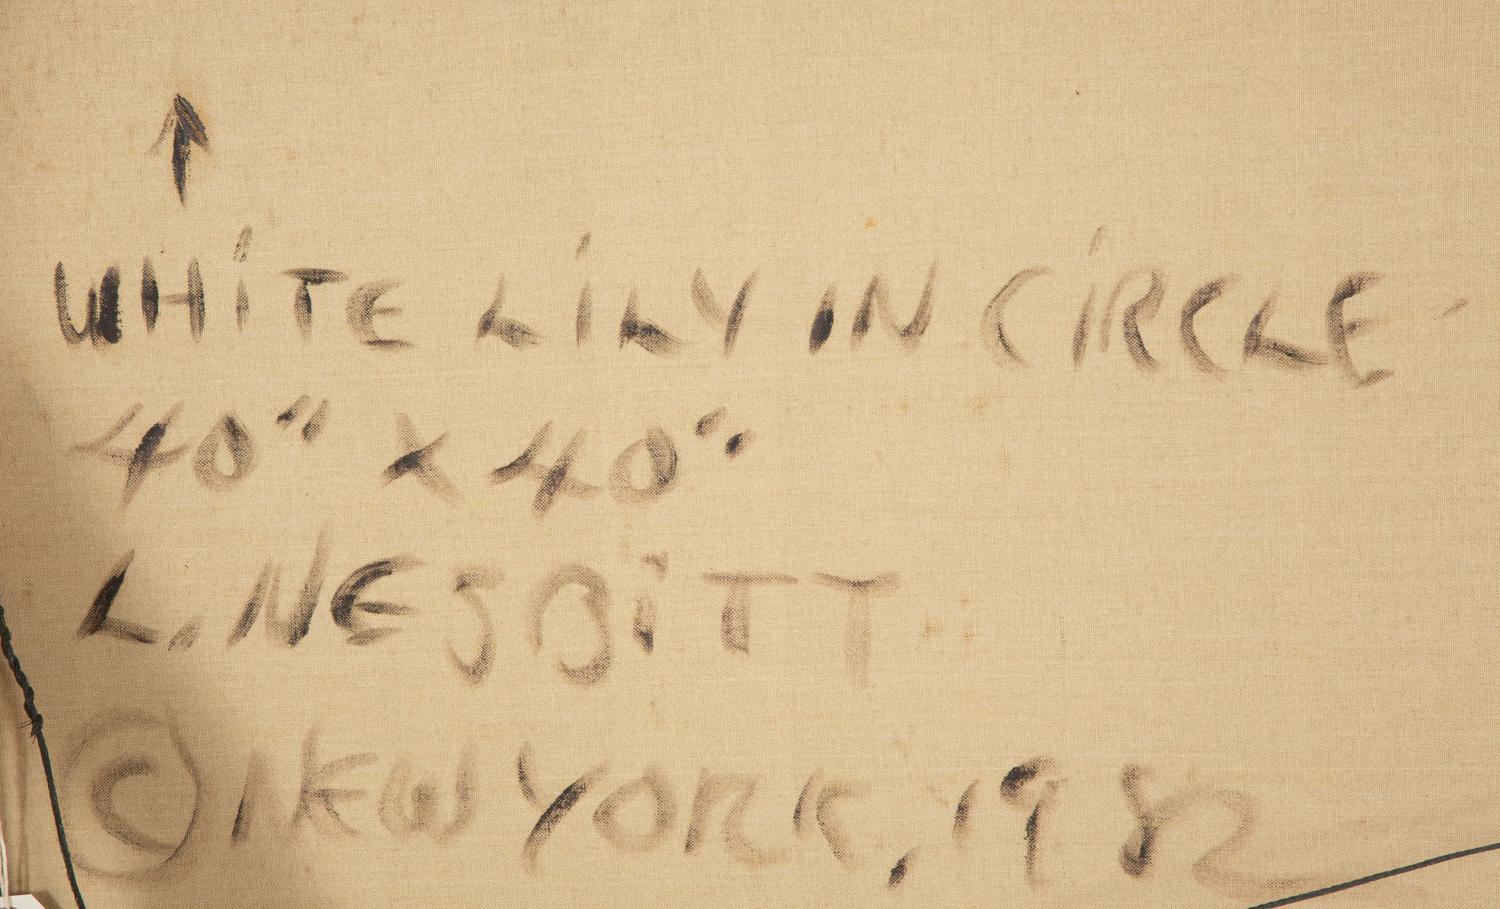 WHiTE LiLY iN CiRCLE-
40" x 40"
L. NESBiTT
© NEW YORK, 1982